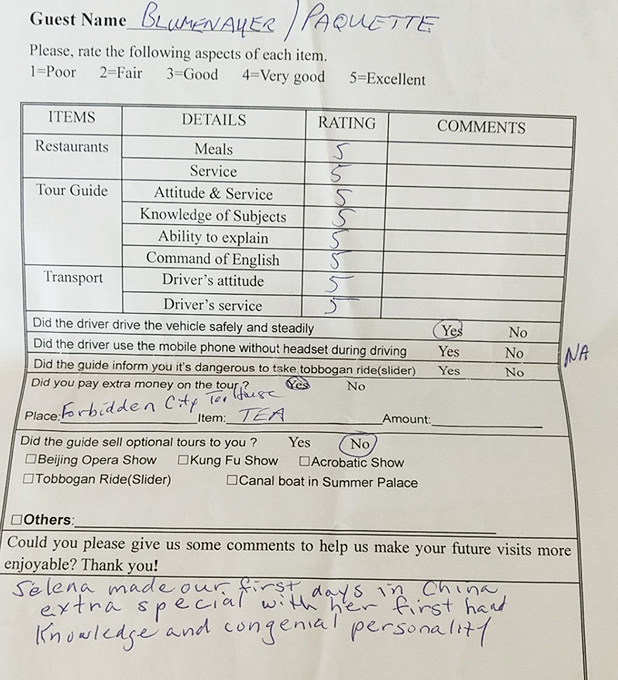 Guest Name BLUMENAUER / PAQUETTE
Please, rate the following aspects of each item.
1=Poor 2=Fair 3=Good 4=Very good 5=Excellent
ITEMS DETAILS RATING COMMENTS
Restaurants Meals 5
Service 5
Tour Guide Attitude & Service 5
Knowledge of Subjects 5
Ability to explain 5
Command of English 5
Transport Driver's attitude 5
Driver's service 5
Did the driver drive the vehicle safely and steadily Yes No
Did the driver use the mobile phone without headset during driving Yes No NA
Did the guide inform you it's dangerous to take tobbogan ride(slider) Yes No
Did you pay extra money on the tour? Yes No
Place: Forbidden City Tea House Item: TEA Amount:
Did the guide sell optional tours to you ? Yes No
☐Beijing Opera Show ☐Kung Fu Show ☐Acrobatic Show
☐Tobbogan Ride(Slider) ☐Canal boat in Summer Palace
☐Others:
Could you please give us some comments to help us make your future visits more
enjoyable? Thank you!
Selena made our first days in China
extra special with her first hand
Knowledge and congenial personality